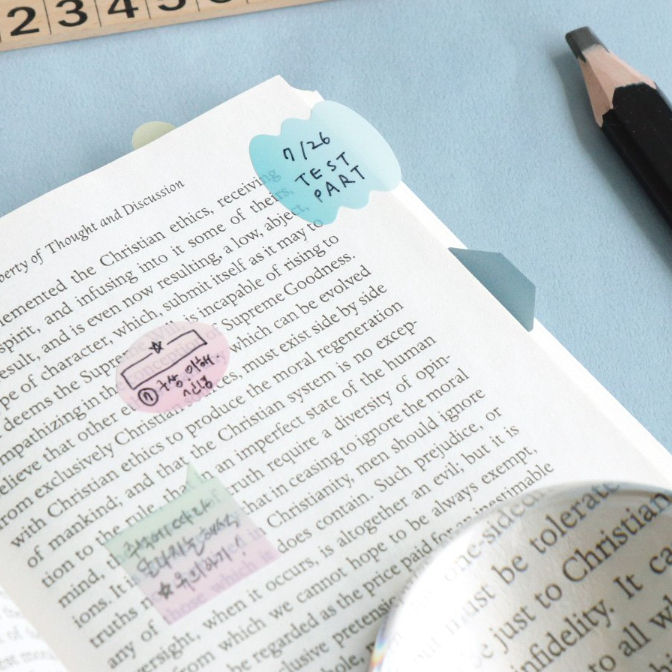 2 3 4 5 6
7/26
TEST
PART
berty of Thought and Discussion
lemented the Christian ethics, receiving
spirit, and infusing into it some of theirs.
esult, and is even now resulting, a low, abject,
pe of character, which, submit itself as it may to
deems the Supreme Will, is incapable of rising to
mpathizing in the conception of Supreme Goodness.
elieve that other e which can be evolved
rom exclusively Christian sources, must exist side by side
with Christian ethics to produce the moral regeneration
of mankind; and that the Christian system is no excep-
tion to the rule, tha an imperfect state of the human
mind, ruth require a diversity of opin-
ions. It is hat in ceasing to ignore the moral
truths n Christianity, men should ignore
any of those which it does contain. Such prejudice, or
oversight, when it occurs, is altogether an evil; but it is
from which we cannot hope to be always exempt,
be regarded as the price paid for an inestimable
clusive pretensio
one-sided
must be tolerate
e just to Christian
nfidelity. It ca
o all w